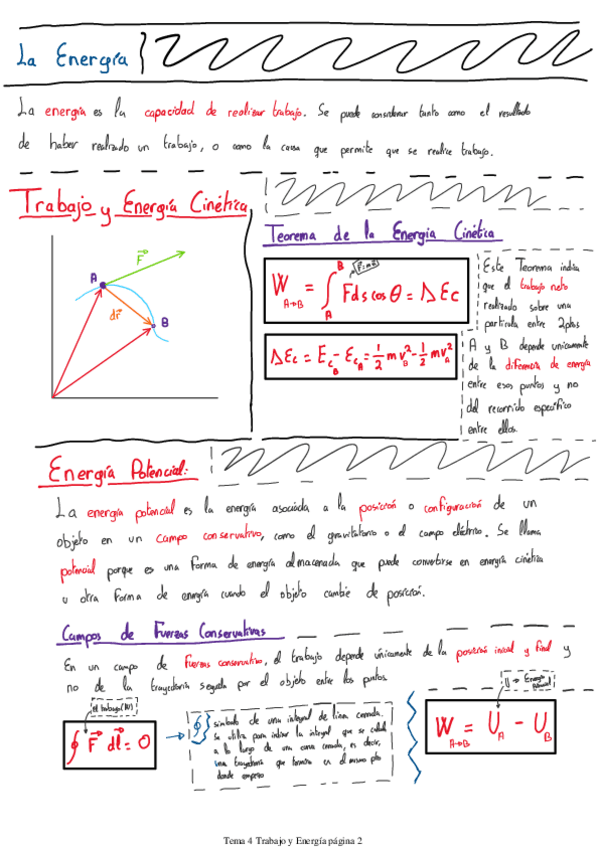 La Energía
La energía es la capacidad de realizar trabajo. Se puede considerar tanto como el resultado
de haber realizado un trabajo, o como la causa que permite que se realice trabajo.
Trabajo y Energía Cinética
Teorema de la Energía Cinética
F⃗
A
dr⃗
B
W A→B = ∫ A B F ds cos θ = Δ Ec
ΔEc = E c B - E c A = 1/2 m v B ² - 1/2 m v A ²
Este Teorema indica
que el trabajo neto
realizado sobre una
partícula entre 2 ptos
A y B depende unicamente
de la diferencia de energía
entre esos puntos y no
del recorrido específico
entre ellos.
Energía Potencial:
La energía potencial es la energía asociada a la posición o configuración de un
objeto en un campo conservativo, como el gravitatorio o el campo eléctrico. Se llama
potencial porque es una forma de energía almacenada que puede convertirse en energía cinética
u otra forma de energía cuando el objeto cambie de posición.
Campos de Fuerzas Conservativas
En un campo de fuerzas conservativo, el trabajo depende únicamente de la posición inicial y final y
no de la trayectoria seguida por el objeto entre los puntos.
El trabajo (W)
∮ F⃗ dl⃗ = 0
∮ símbolo de una integral de línea cerrada
se utiliza para indicar la integral que se calcula
a lo largo de una curva cerrada, es decir,
una trayectoria que termina en el mismo pto
donde empezo
U → Energía potencial
W A→B = U A - U B
Tema 4 Trabajo y Energía página 2